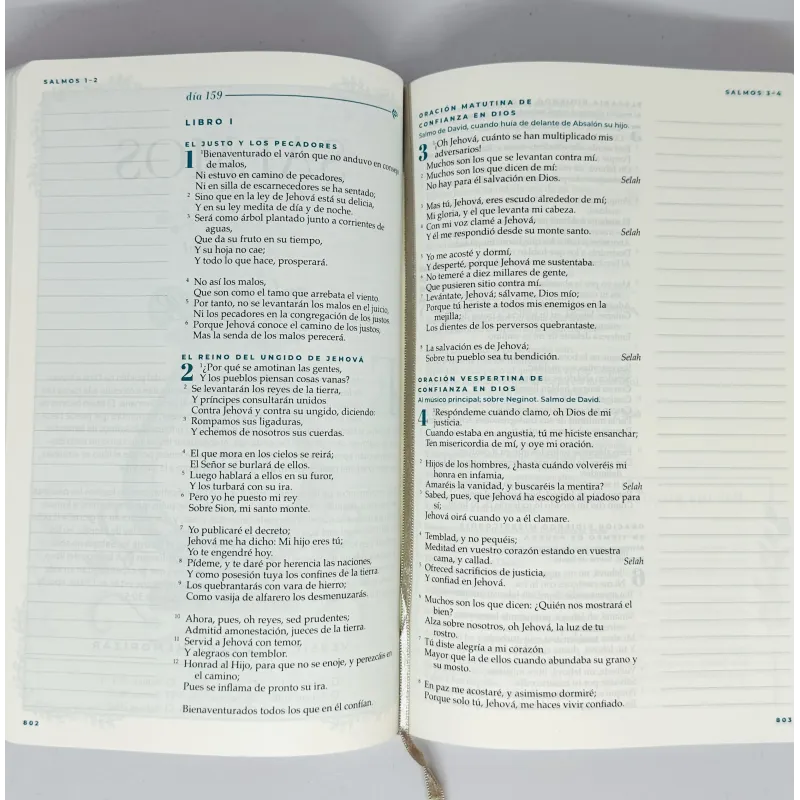 SALMOS 1-2
día 159
LIBRO I
EL JUSTO Y LOS PECADORES
1 ¹Bienaventurado el varón que no anduvo en consejo
de malos,
Ni estuvo en camino de pecadores,
Ni en silla de escarnecedores se ha sentado;
² Sino que en la ley de Jehová está su delicia,
Y en su ley medita de día y de noche.
³ Será como árbol plantado junto a corrientes de
aguas,
Que da su fruto en su tiempo,
Y su hoja no cae;
Y todo lo que hace, prosperará.
⁴ No así los malos,
Que son como el tamo que arrebata el viento.
⁵ Por tanto, no se levantarán los malos en el juicio,
Ni los pecadores en la congregación de los justos.
⁶ Porque Jehová conoce el camino de los justos,
Mas la senda de los malos perecerá.
EL REINO DEL UNGIDO DE JEHOVÁ
2 ¹¿Por qué se amotinan las gentes,
Y los pueblos piensan cosas vanas?
² Se levantarán los reyes de la tierra,
Y príncipes consultarán unidos
Contra Jehová y contra su ungido, diciendo:
³ Rompamos sus ligaduras,
Y echemos de nosotros sus cuerdas.
⁴ El que mora en los cielos se reirá;
El Señor se burlará de ellos.
⁵ Luego hablará a ellos en su furor,
Y los turbará con su ira.
⁶ Pero yo he puesto mi rey
Sobre Sion, mi santo monte.
⁷ Yo publicaré el decreto;
Jehová me ha dicho: Mi hijo eres tú;
Yo te engendré hoy.
⁸ Pídeme, y te daré por herencia las naciones,
Y como posesión tuya los confines de la tierra.
⁹ Los quebrantarás con vara de hierro;
Como vasija de alfarero los desmenuzarás.
¹⁰ Ahora, pues, oh reyes, sed prudentes;
Admitid amonestación, jueces de la tierra.
¹¹ Servid a Jehová con temor,
Y alegraos con temblor.
¹² Honrad al Hijo, para que no se enoje, y perezcáis en
el camino;
Pues se inflama de pronto su ira.
Bienaventurados todos los que en él confían.
802
SALMOS 3-4
ORACIÓN MATUTINA DE
CONFIANZA EN DIOS
Salmo de David, cuando huía de delante de Absalón su hijo.
3 ¹¡Oh Jehová, cuánto se han multiplicado mis
adversarios!
Muchos son los que se levantan contra mí.
² Muchos son los que dicen de mí:
No hay para él salvación en Dios. Selah
³ Mas tú, Jehová, eres escudo alrededor de mí;
Mi gloria, y el que levanta mi cabeza.
⁴ Con mi voz clamé a Jehová,
Y él me respondió desde su monte santo. Selah
⁵ Yo me acosté y dormí,
Y desperté, porque Jehová me sustentaba.
⁶ No temeré a diez millares de gente,
Que pusieren sitio contra mí.
⁷ Levántate, Jehová; sálvame, Dios mío;
Porque tú heriste a todos mis enemigos en la
mejilla;
Los dientes de los perversos quebrantaste.
⁸ La salvación es de Jehová;
Sobre tu pueblo sea tu bendición. Selah
ORACIÓN VESPERTINA DE
CONFIANZA EN DIOS
Al músico principal; sobre Neginot. Salmo de David.
4 ¹Respóndeme cuando clamo, oh Dios de mi
justicia.
Cuando estaba en angustia, tú me hiciste ensanchar;
Ten misericordia de mí, y oye mi oración.
² Hijos de los hombres, ¿hasta cuándo volveréis mi
honra en infamia,
Amaréis la vanidad, y buscaréis la mentira? Selah
³ Sabed, pues, que Jehová ha escogido al piadoso para
sí;
Jehová oirá cuando yo a él clamare.
⁴ Temblad, y no pequéis;
Meditad en vuestro corazón estando en vuestra
cama, y callad. Selah
⁵ Ofreced sacrificios de justicia,
Y confiad en Jehová.
⁶ Muchos son los que dicen: ¿Quién nos mostrará el
bien?
Alza sobre nosotros, oh Jehová, la luz de tu
rostro.
⁷ Tú diste alegría a mi corazón
Mayor que la de ellos cuando abundaba su grano y
su mosto.
⁸ En paz me acostaré, y asimismo dormiré;
Porque solo tú, Jehová, me haces vivir confiado.
803